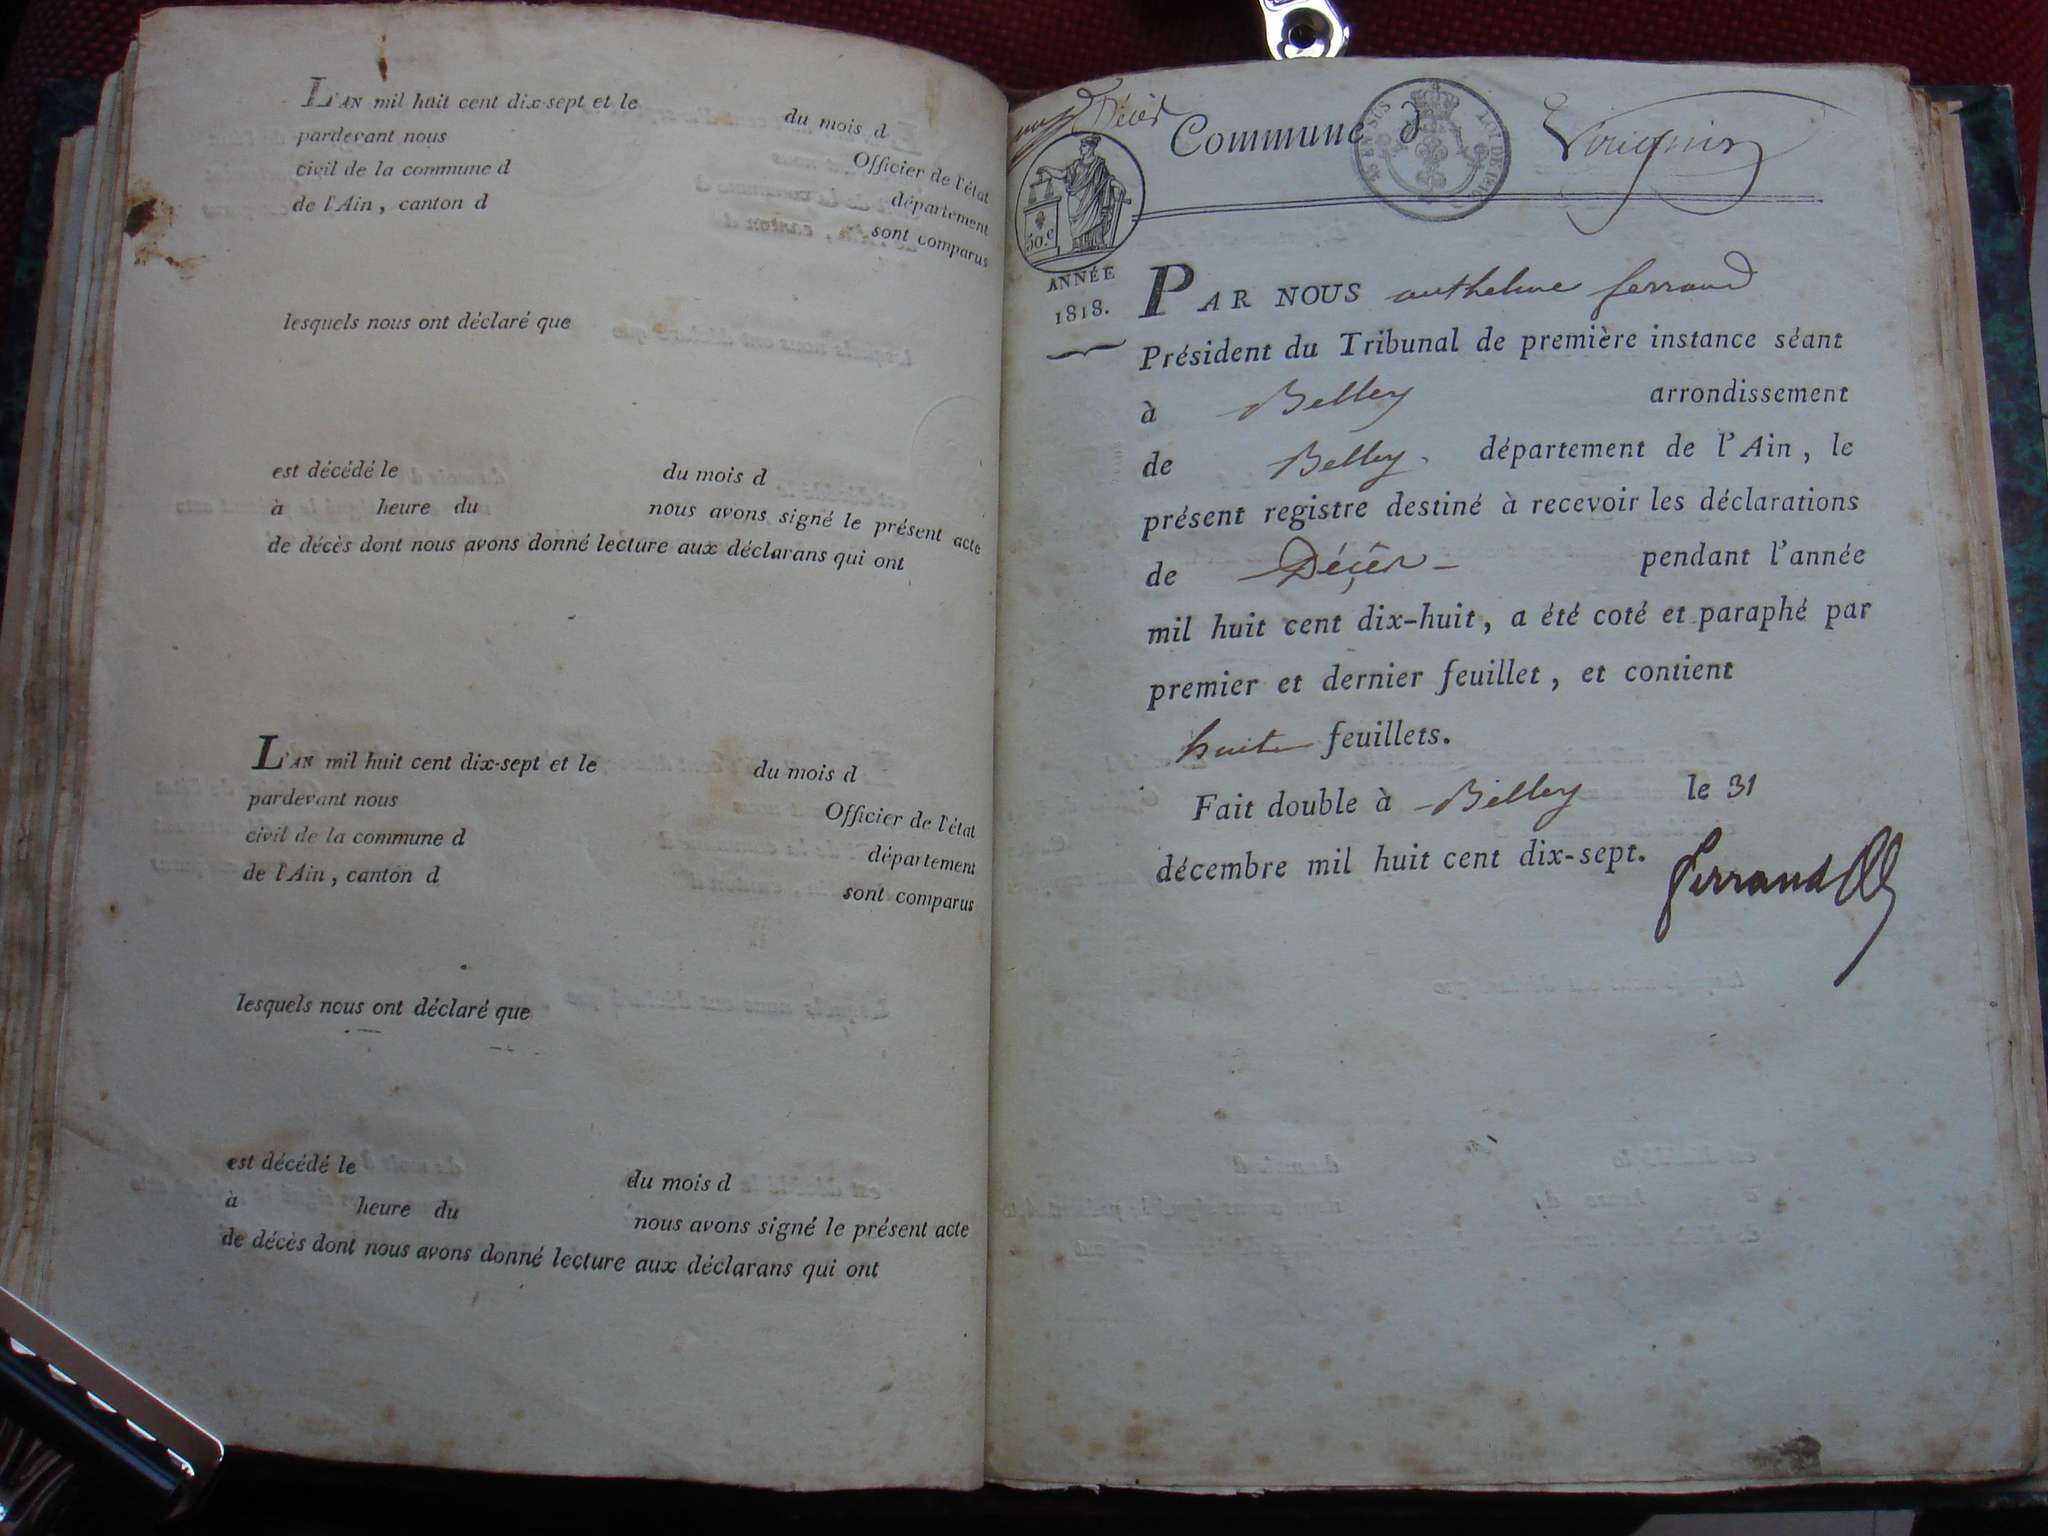 L'AN mil huit cent dix-sept et le du mois d
pardevant nous Officier de l'état
civil de la commune d département
de l'Ain, canton d sont comparus
lesquels nous ont déclaré que
est décédé le du mois d
à heure du nous avons signé le présent acte
de décès dont nous avons donné lecture aux déclarans qui ont
L'AN mil huit cent dix-sept et le du mois d
pardevant nous Officier de l'état
civil de la commune d département
de l'Ain, canton d sont comparus
lesquels nous ont déclaré que
est décédé le du mois d
à heure du nous avons signé le présent acte
de décès dont nous avons donné lecture aux déclarans qui ont
Décès
Commune d Virignin
50.c
ANNÉE
1818.
PAR NOUS anthelme ferrand
Président du Tribunal de première instance séant
à Belley arrondissement
de Belley département de l'Ain, le
présent registre destiné à recevoir les déclarations
de Décès pendant l'année
mil huit cent dix-huit, a été coté et paraphé par
premier et dernier feuillet, et contient
huit feuillets.
Fait double à Belley le 31
décembre mil huit cent dix-sept.
ferrand